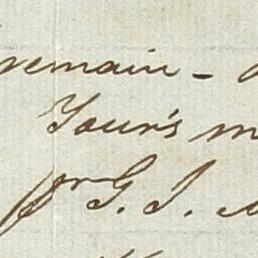 remain –
Your's m
for G. J.